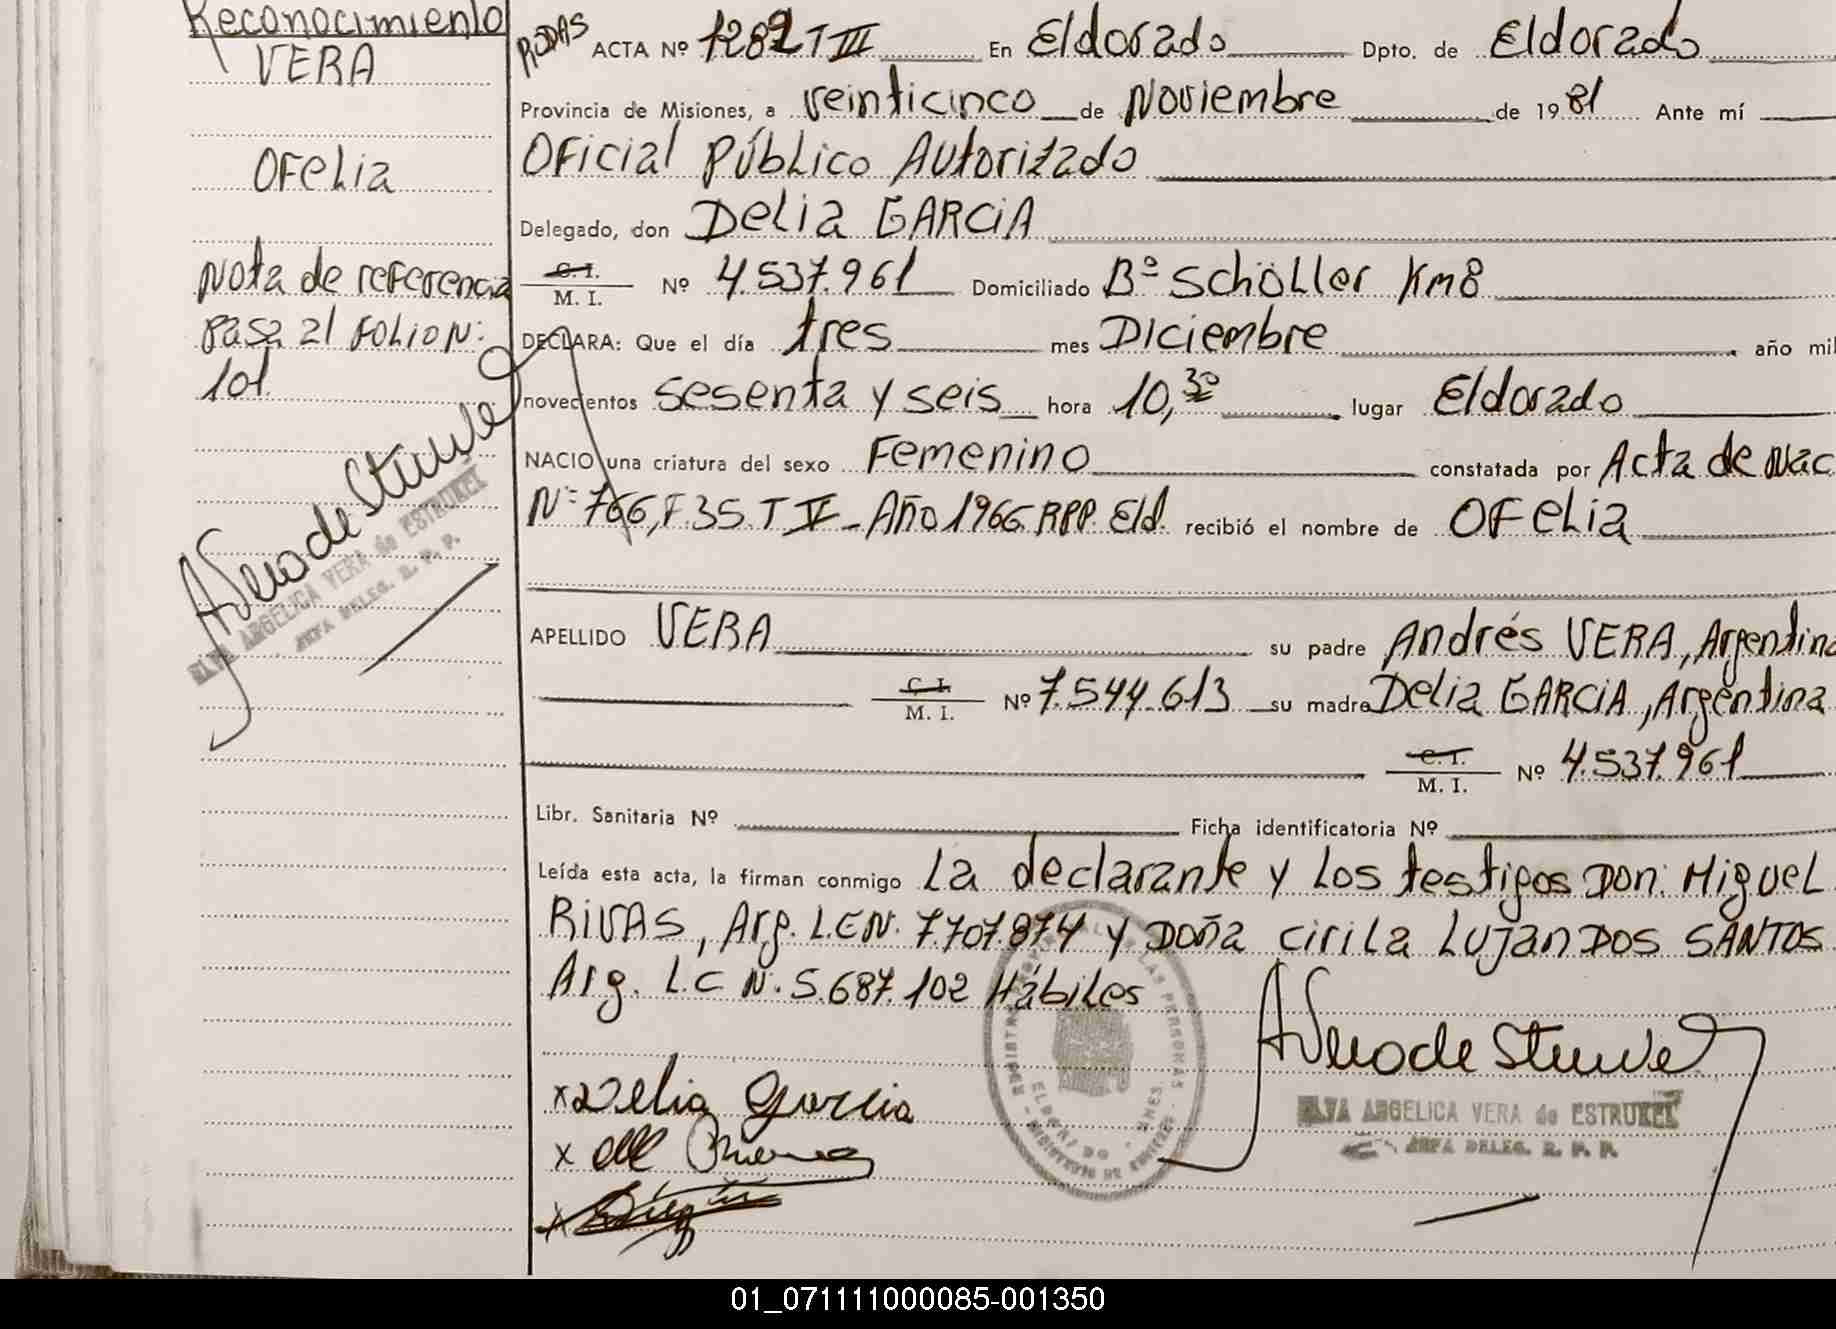 Reconocimiento
VERA
OFELIA
Nota de referencia
pasa al FOLION:
101.
ELVA ANGELICA VERA de ESTRUKEL
JEFA DELEG. R. P. P.
RODAS ACTA Nº 1282 T III En Eldorado Dpto. de Eldorado
Provincia de Misiones, a veinticinco de Noviembre de 1981 Ante mí
OFicial Público Autorizado
Delegado, don Delia GARCIA
C. I. / M. I. Nº 4.537.961 Domiciliado Bº Schöller Km8
DECLARA: Que el día tres mes Diciembre año mil
novecientos sesenta y seis hora 10,30 lugar Eldorado
NACIO una criatura del sexo Femenino constatada por Acta de Nac
Nº 766, F. 35. T IV - Año 1966. RPP. Eld. recibió el nombre de OFELIA
APELLIDO VERA su padre Andrés VERA, Argentino
C. I. / M. I. Nº 7.544.613 su madre Delia GARCIA, Argentina
C. I. / M. I. Nº 4.537.961
Libr. Sanitaria Nº Ficha identificatoria Nº
Leída esta acta, la firman conmigo La declarante y Los testigos Don: Miguel
RIVAS, Arg. L.E N. 7.707.874 y Doña Cirila Lujan DOS SANTOS
Arg. L.C N. 5.687.102 Hábiles
x Delia Garcia
x
x
ELVA ANGELICA VERA de ESTRUKEL
JEFA DELEG. R. P. P.
01_071111000085-001350